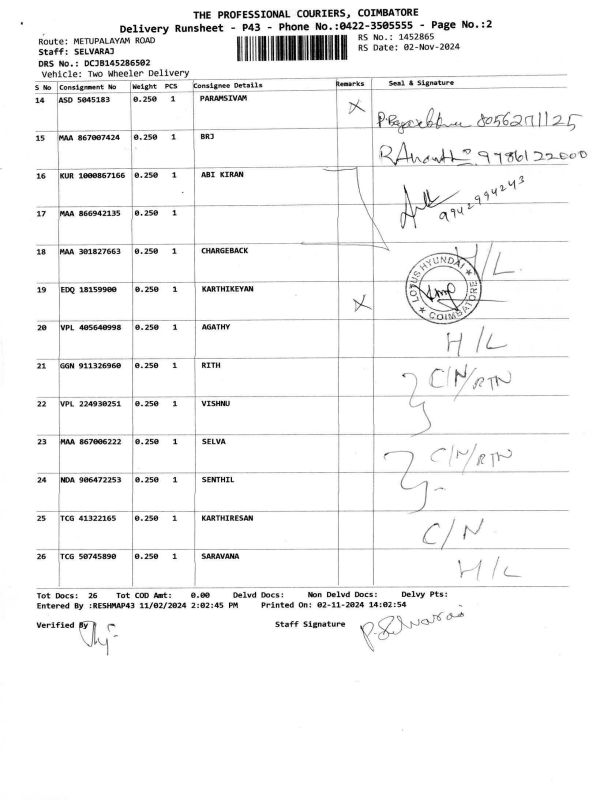 THE PROFESSIONAL COURIERS, COIMBATORE
Delivery Runsheet - P43 - Phone No.:0422-3505555 - Page No.:2
Route: METUPALAYAM ROAD
RS No.: 1452865
Staff: SELVARAJ
RS Date: 02-Nov-2024
DRS No.: DCJB145286502
Vehicle: Two Wheeler Delivery
S No Consignment No Weight PCS Consignee Details Remarks Seal & Signature
14 ASD 5045183 0.250 1 PARAMSIVAM X 8056271125
15 MAA 867007424 0.250 1 BRJ R Ananth 9786122000
16 KUR 1000867166 0.250 1 ABI KIRAN 9942994243
17 MAA 866942135 0.250 1
18 MAA 301827663 0.250 1 CHARGEBACK H/L
LOTUS HYUNDAI * COIMBATORE *
19 EDQ 18159900 0.250 1 KARTHIKEYAN X
20 VPL 405640998 0.250 1 AGATHY H/L
21 GGN 911326960 0.250 1 RITH C/N/RTN
22 VPL 224930251 0.250 1 VISHNU
23 MAA 867006222 0.250 1 SELVA C/N/RTN
24 NDA 906472253 0.250 1 SENTHIL
25 TCG 41322165 0.250 1 KARTHIRESAN C/N
26 TCG 50745890 0.250 1 SARAVANA H/L
Tot Docs: 26 Tot COD Amt: 0.00 Delvd Docs: Non Delvd Docs: Delvy Pts:
Entered By :RESHMAP43 11/02/2024 2:02:45 PM Printed On: 02-11-2024 14:02:54
Verified By Staff Signature P. Selvaraj